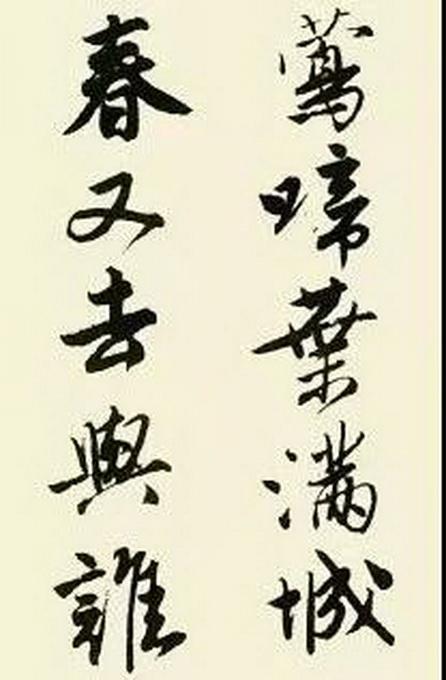 鶯啼葉滿城
春又去與誰